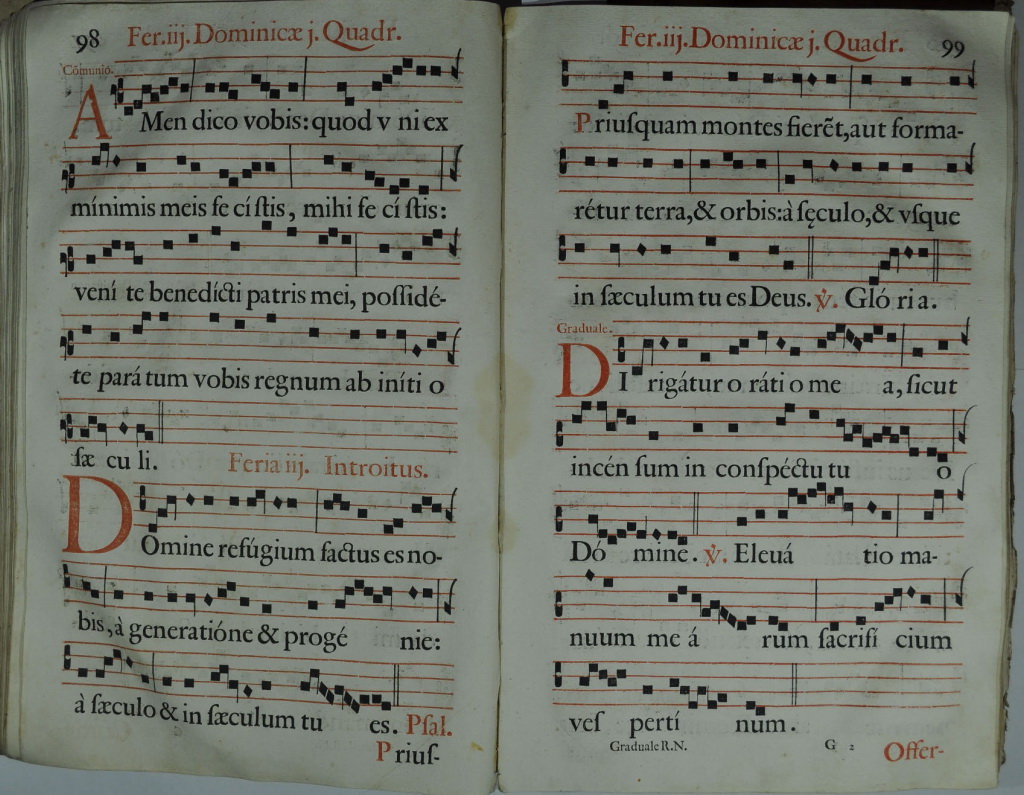 98 Fer.iij. Dominicæ j. Quadr.
Cõmunio.
AMen dico vobis: quod v ni ex
mínimis meis fe cí ſtis, mihi fe cí ſtis:
vení te benedícti patris mei, poſſidé-
te pará tum vobis regnum ab iníti o
ſæ cu li. Feria iij. Introitus.
DOmine refúgium factus es no-
bis, à generatióne & progé nie:
à ſæculo & in ſæculum tu es. Pſal.
Priuſ-
Fer.iij. Dominicæ j. Quadr. 99
Priuſquam montes fierẽt, aut forma-
rétur terra, & orbis: à ſęculo, & vſque
in ſæculum tu es Deus. ℣. Gló ri a.
Graduale.
DI rigátur o ráti o me a, ſicut
incén ſum in conſpéctu tu o
Dó mine. ℣. Eleuá tio ma-
nuum me á rum ſacrifí cium
veſ pertí num.
Graduale R.N. G 2 Offer-